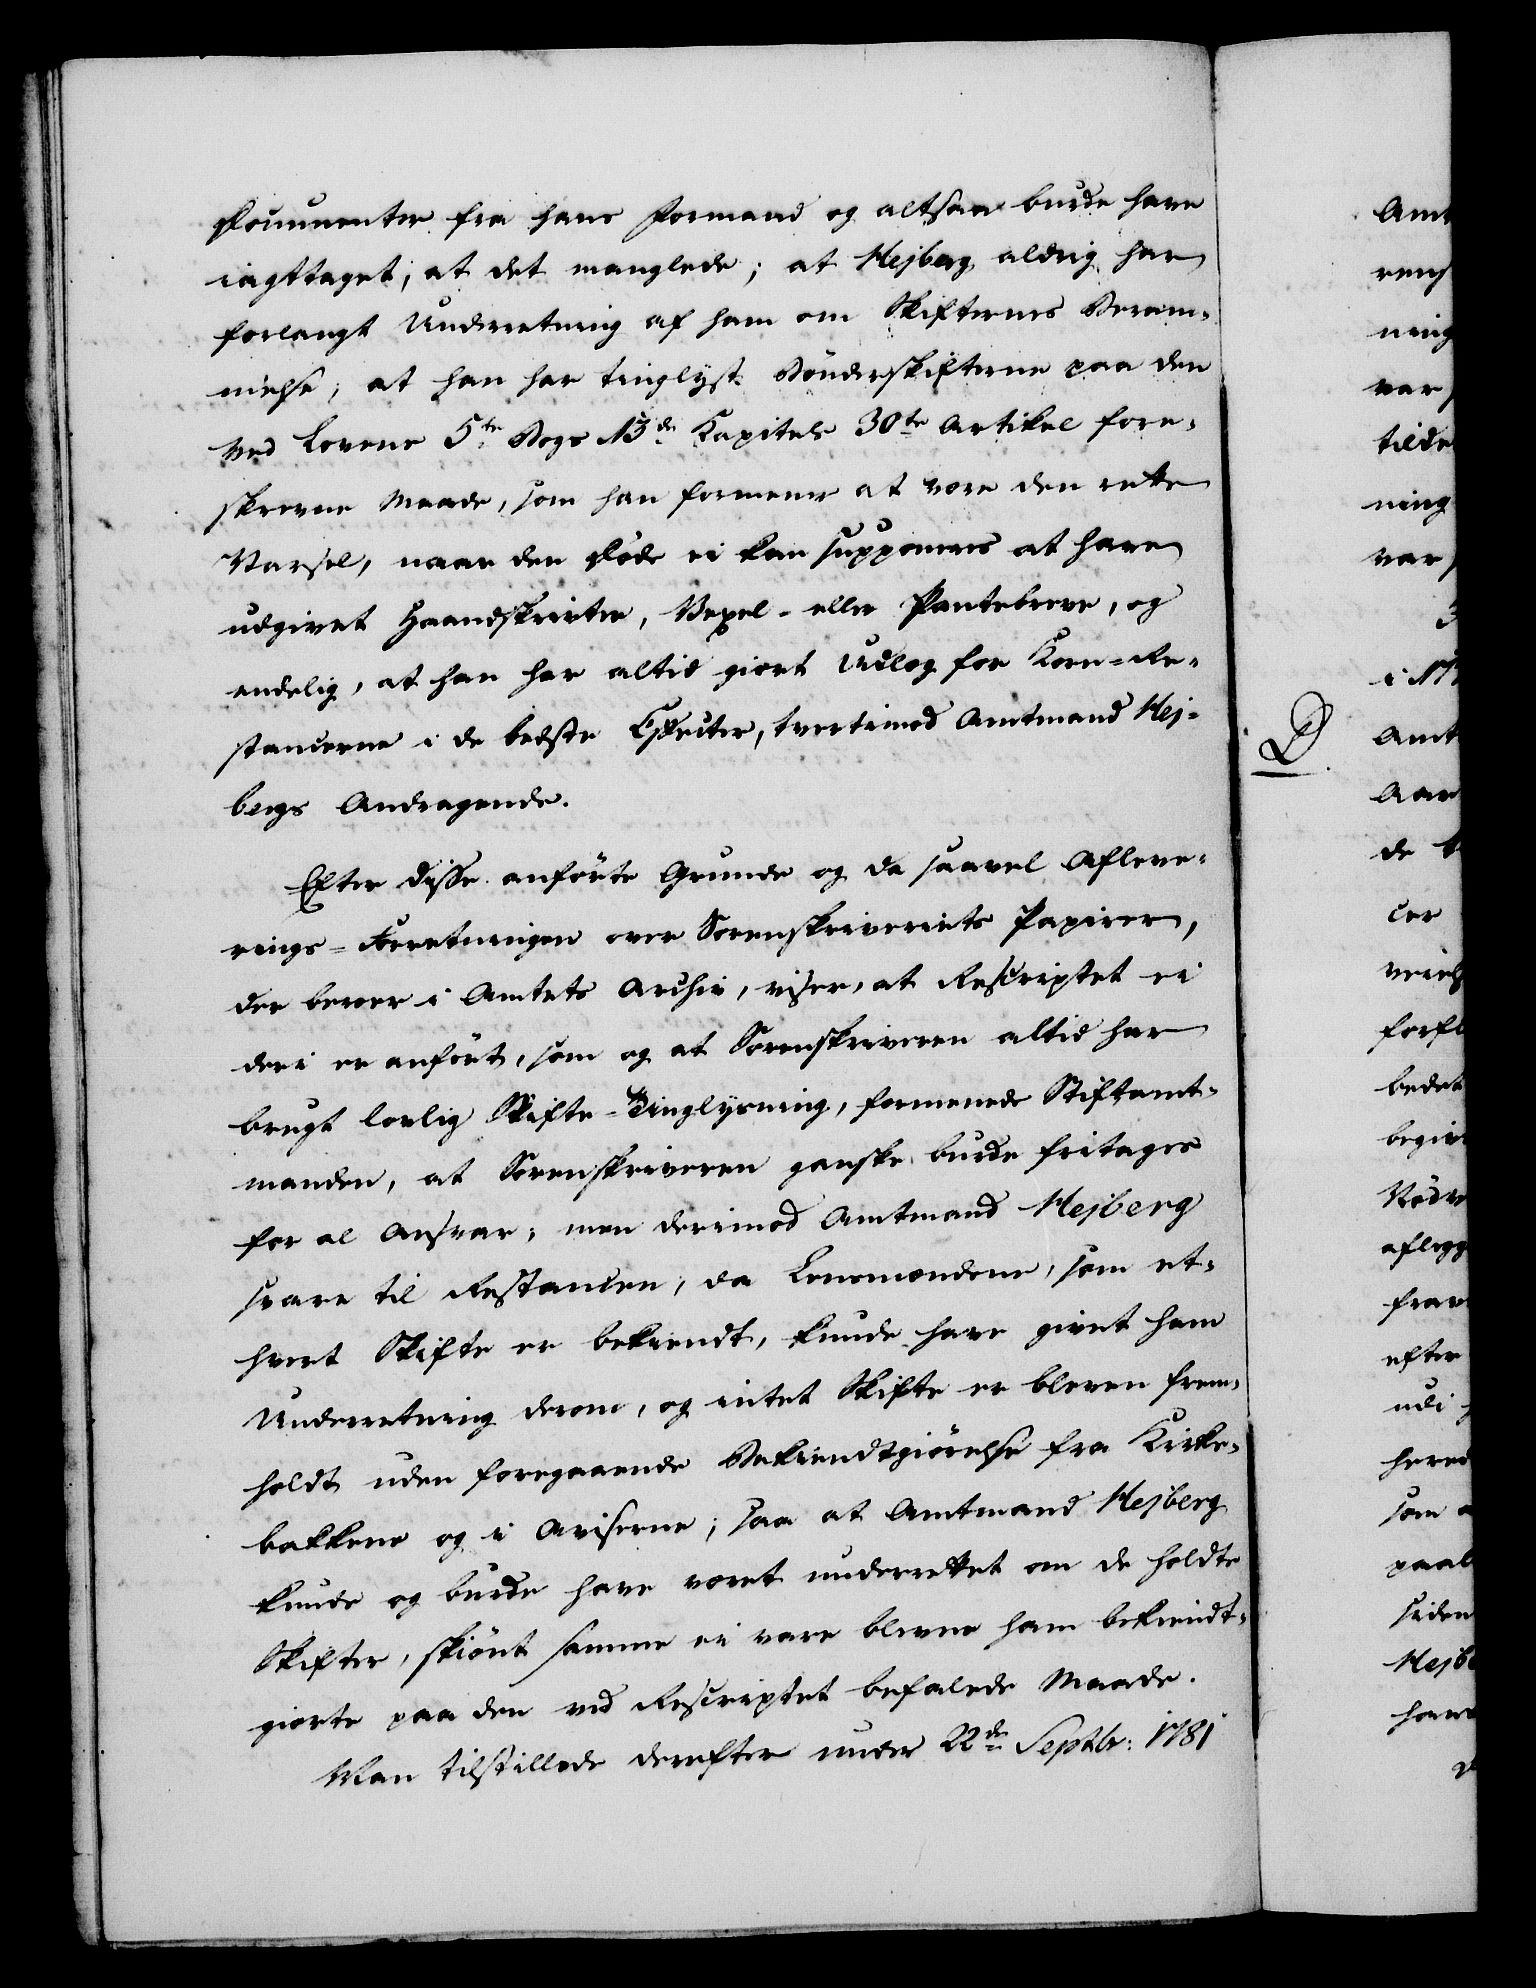 Documenter fra hans Formand og altsaa burde have
iagttaget, at det manglede; at Hejberg aldrig har
forlangt Underretning af ham om Skifternes Beram-
melse; at han har tinglyst Bönderskifterne paa den
ved Lovens 5te Bogs 13de Kapitels 30te Artikel fore-
skrevne Maade, som han formener at være den rette
Varsel, naar den Döde ei kan supponeres at have
udgivet Haandskrivter, Vexel- eller Pantebreve, og
endelig, at han har altid giort Udlæg for Korn-Re-
stancerne i de bedste Effecter, tvertimod Amtmand Hej-
bergs Andragende.
Efter disse anförte Grunde og da saavel Afleve-
rings-Forretningen over Sorenskriveriets Papirer,
der beroer i Amtets Archiv, viser, at Rescriptet ei
deri er anfört, som og at Sorenskriveren altid har
brugt lovlig Skifte-Tinglysning, formenede Stiftamt-
manden, at Sorenskriveren ganske burde fritages
for al Ansvar; men derimod Amtmand Hejberg
svare til Restancen, da Lensmændene, som et-
hvert Skifte er bekiendt, kunde have givet ham
Underretning derom, og intet Skifte er bleven frem-
holdt uden foregaaende Bekiendtgiörelse fra Kirke-
bakkene og i Aviserne; saa at Amtmand Hejberg
kunde og burde have været underrettet om de holdte
Skifter, skiönt samme ei vare blevne ham bekiendt-
giorte paa den ved Rescriptet befalede Maade.
Man tilstillede derefter under 22de Septbr: 1781
D.